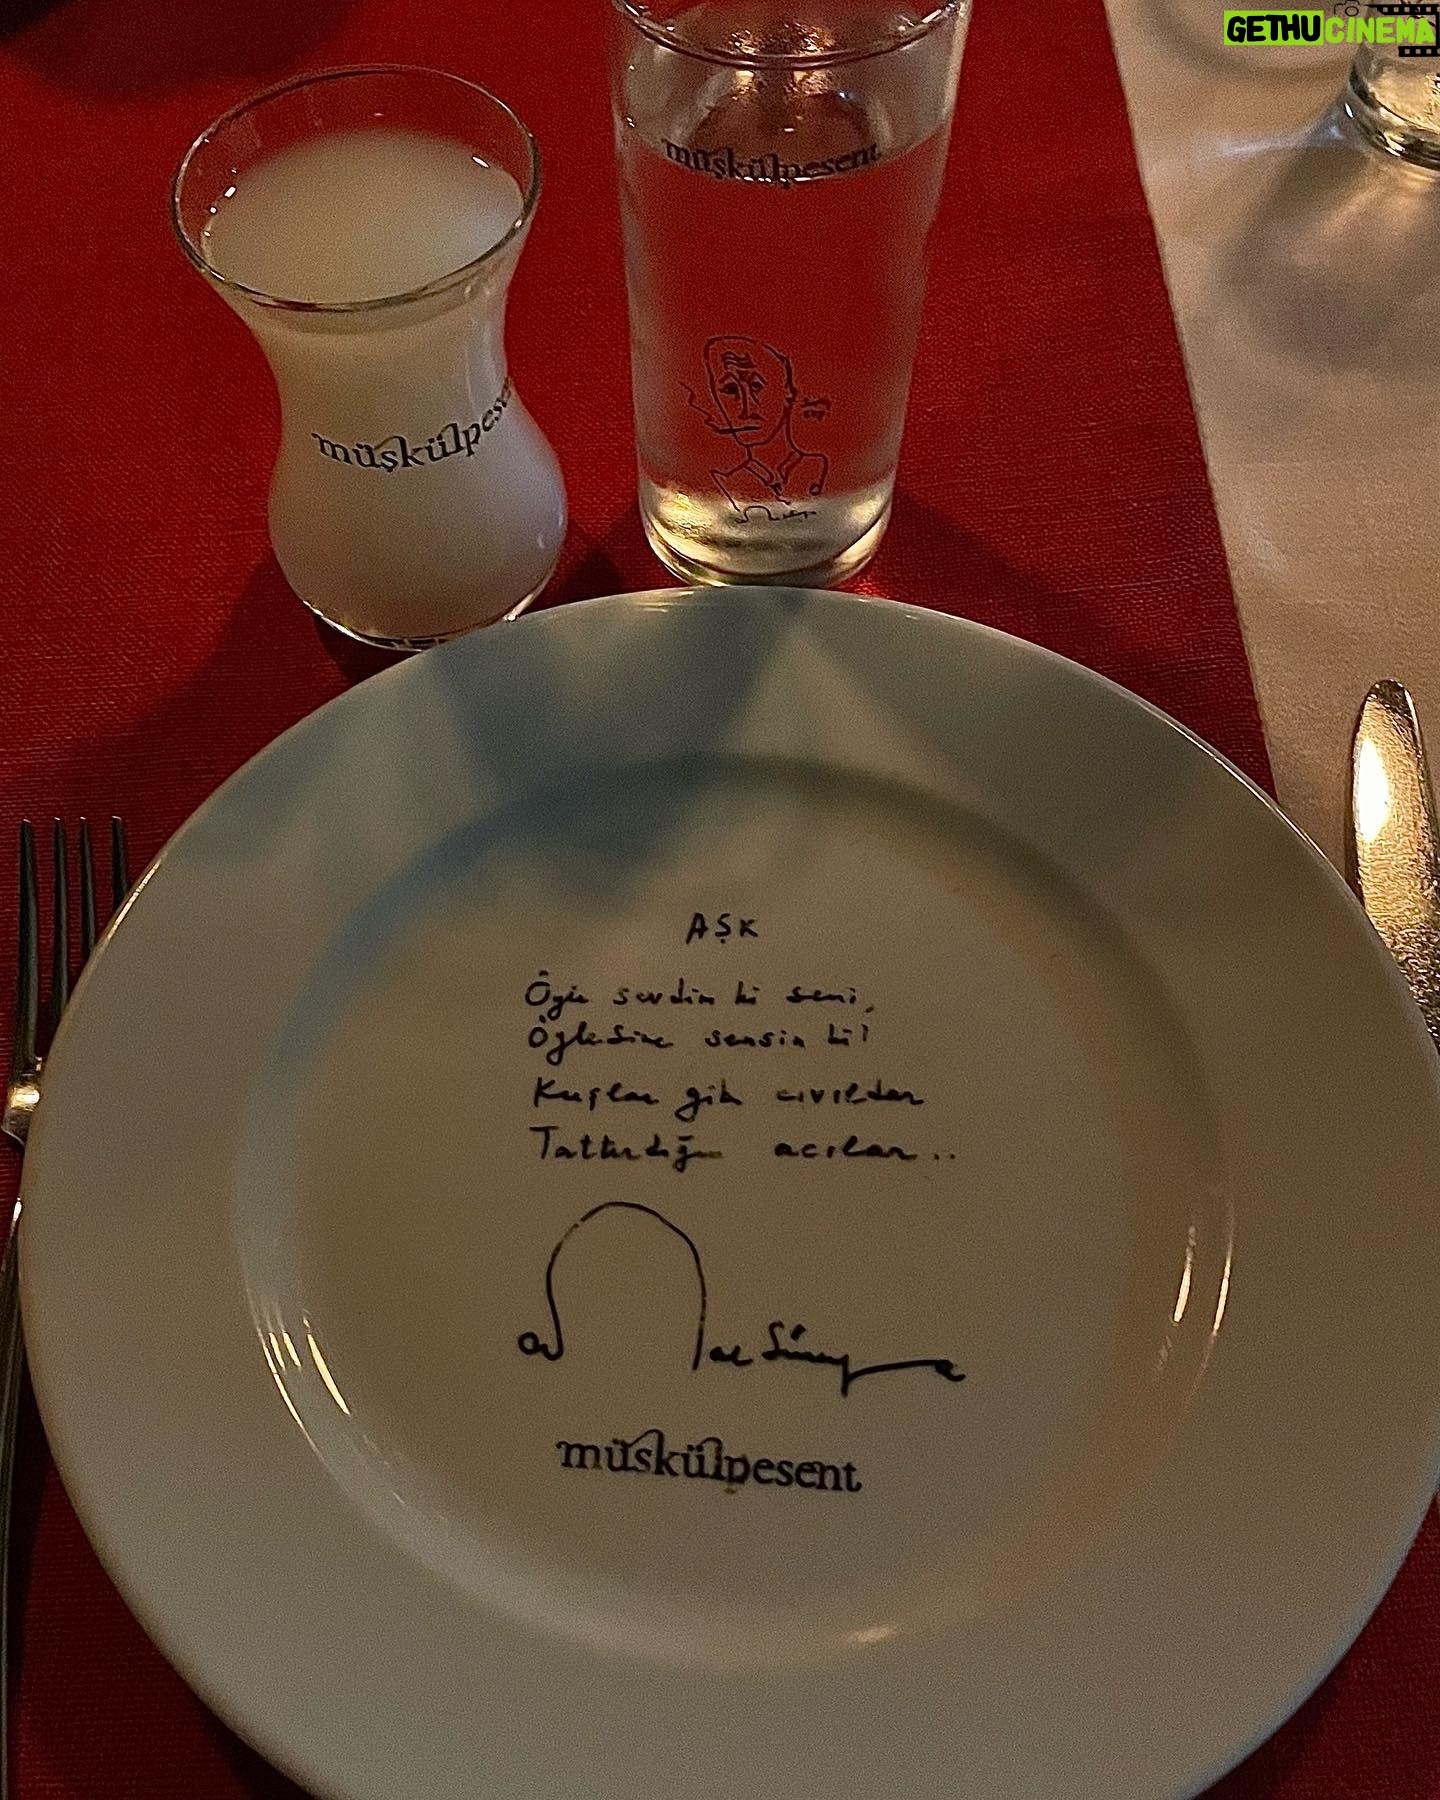 GETHUCINEMA
müşkülpesent
müşkülpese
AŞK
Öyle sevdim ki seni,
Öylesine sensin ki!
Kuşlar gibi cıvıldar
Tattırdığın acılar..
Cemal Süreya
müşkülpesent